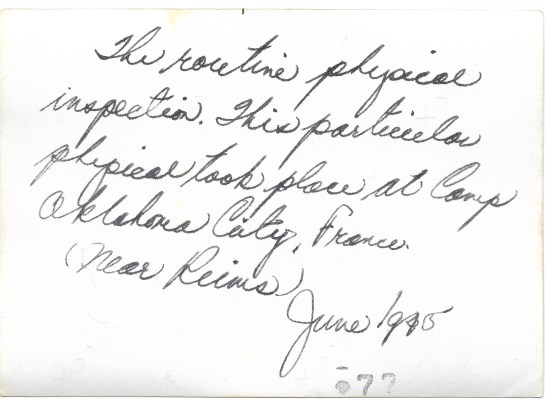 The routine physical
inspection. This particular
physical took place at Camp
Oklahoma City, France.
(Near Reims)
June 1945
077